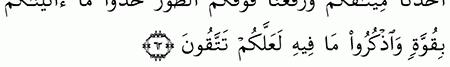 أَخَذْنَا مِيثَـٰقَكُمْ وَرَفَعْنَا فَوْقَكُمُ ٱلطُّورَ خُذُوا۟ مَآ ءَاتَيْنَـٰكُم
بِقُوَّةٍ وَٱذْكُرُوا۟ مَا فِيهِ لَعَلَّكُمْ تَتَّقُونَ ٦٣